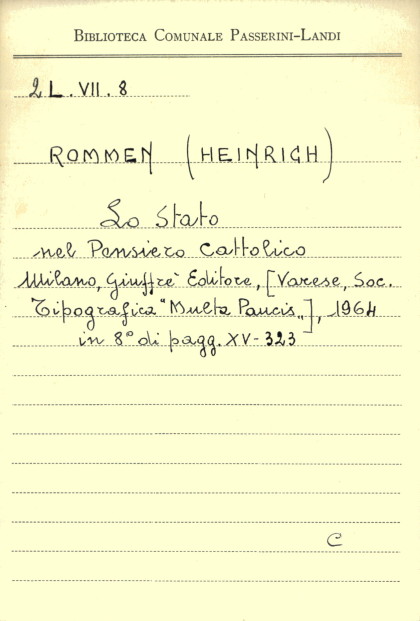 BIBLIOTECA COMUNALE PASSERINI-LANDI
2 L. VII. 8
ROMMEN (HEINRICH)
Lo Stato
nel Pensiero Cattolico
Milano, Giuffrè Editore, [Varese, Soc.
Tipografica "Multa Paucis„], 1964
in 8° di pagg. XV-323
C